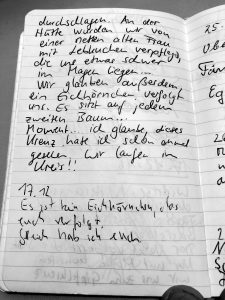 durchschlagen. An der
Hütte wurden wir von
einer netten alten Frau
mit Lebkuchen verpflegt,
die uns etwas schwer
im Magen liegen...
Wir glauben außerdem,
ein Eichhörnchen verfolgt
uns. Es sitzt auf jedem
zweiten Baum...
Moment... ich glaube, dieses
Kreuz habe ich schon einmal
gesehen. Wir laufen im
Kreis!!
17.12
Es ist kein Eichhörnchen, das
euch verfolgt!
Gleich hab ich euch
25.